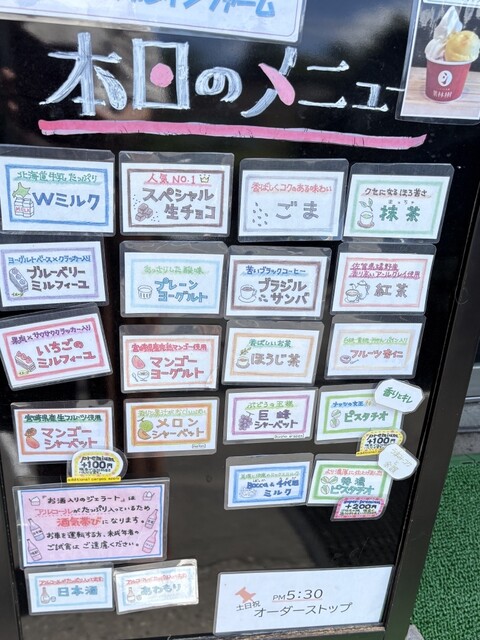 本日のメニュー
北海道牛乳たっぷり
Wミルク
人気NO.1
スペシャル
生チョコ
香ばしくコクのある味わい
ごま
クセになるほろ苦さ
抹茶
ヨーグルトベース×クラッカー入り
ブルーベリー
ミルフィーユ
さっぱりした酸味
プレーン
ヨーグルト
苦いブラックコーヒー
ブラジル
サンバ
佐賀県嬉野産
紅茶
果肉×サクサククラッカー入り
いちごの
ミルフィーユ
宮崎県産完熟マンゴー使用
マンゴー
ヨーグルト
香ばしいお茶
ほうじ茶
フルーツ杏仁
宮崎県産生フルーツ使用
マンゴー
シャーベット
+100円
メロン
シャーベット
ぶどうの王様
巨峰
シャーベット
ナッツの女王
ピスタチオ
香りと干し
+100円
Bocca&千代田
ミルク
より濃厚に
特濃
ピスタチオ
+200円
「お酒入りのジェラート」は
アルコールがたっぷり入っているため
酒気帯びになります。
お車を運転する方、未成年者の
ご試食は ご遠慮ください。
日本酒
あわもり
土日祝 PM5:30
オーダーストップ